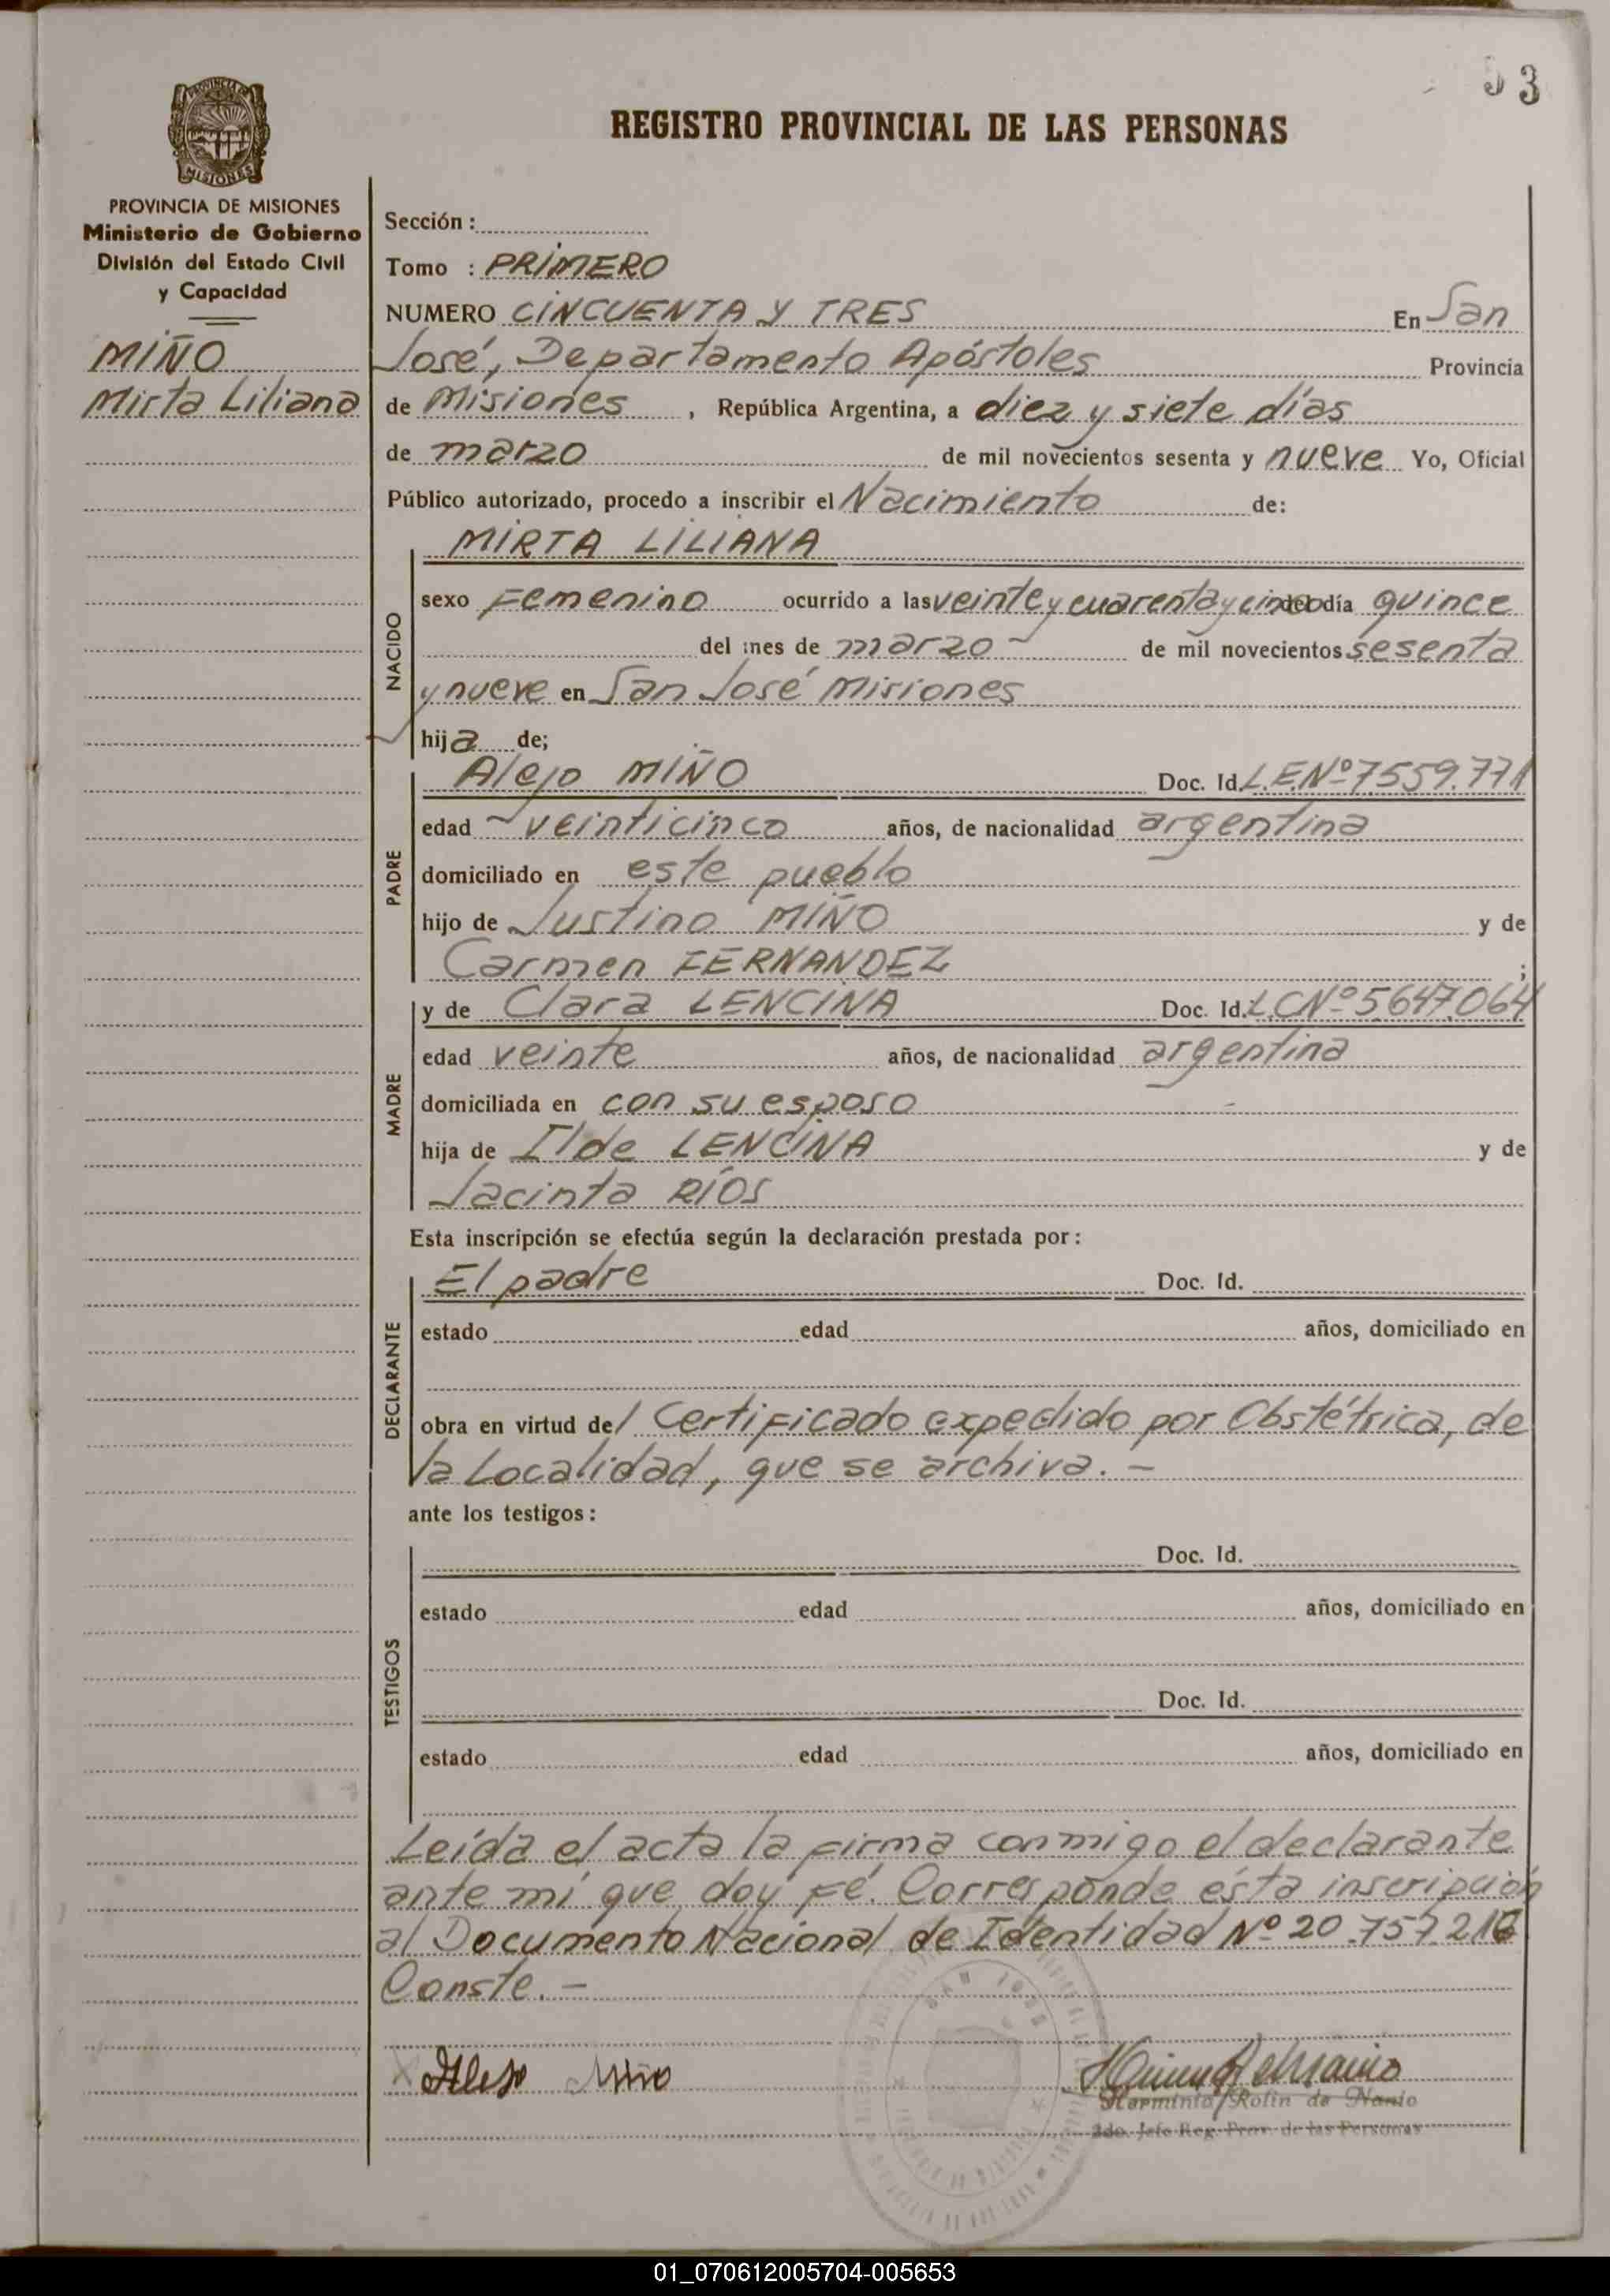 53
PROVINCIA DE MISIONES
Ministerio de Gobierno
División del Estado Civil
y Capacidad
MIÑO
Mirta Liliana
REGISTRO PROVINCIAL DE LAS PERSONAS
Sección :
Tomo : PRIMERO
NUMERO CINCUENTA Y TRES En San
José, Departamento Apóstoles Provincia
de Misiones , República Argentina, a diez y siete días
de marzo de mil novecientos sesenta y nueve Yo, Oficial
Público autorizado, procedo a inscribir el Nacimiento de:
NACIDO
MIRTA LILIANA
sexo Femenino ocurrido a las veinte y cuarenta y cinco del día quince
del mes de marzo de mil novecientos sesenta
y nueve en San José Misiones
hija de;
PADRE
Alejo MIÑO Doc. Id. L.E.Nº 7559.771
edad veinticinco años, de nacionalidad argentina
domiciliado en este pueblo
hijo de Justino MIÑO y de
Carmen FERNANDEZ ;
MADRE
y de Clara LENCINA Doc. Id. L.C.Nº 5.647.064
edad veinte años, de nacionalidad argentina
domiciliada en con su esposo
hija de Ilde LENCINA y de
Jacinta RÍOS
Esta inscripción se efectúa según la declaración prestada por :
DECLARANTE
El padre Doc. Id.
estado edad años, domiciliado en
obra en virtud del Certificado expedido por Obstétrica, de
la Localidad, que se archiva. -
ante los testigos :
TESTIGOS
Doc. Id.
estado edad años, domiciliado en
Doc. Id.
estado edad años, domiciliado en
Leída el acta la firma conmigo el declarante
ante mí que doy fé. Corresponde ésta inscripción
al Documento Nacional de Identidad Nº 20.757.218
Conste. -
SAN JOSE
Alejo Miño
Herminia Rolin de Nanio
2do. Jefe Reg. Prov. de las Personas
01_070612005704-005653